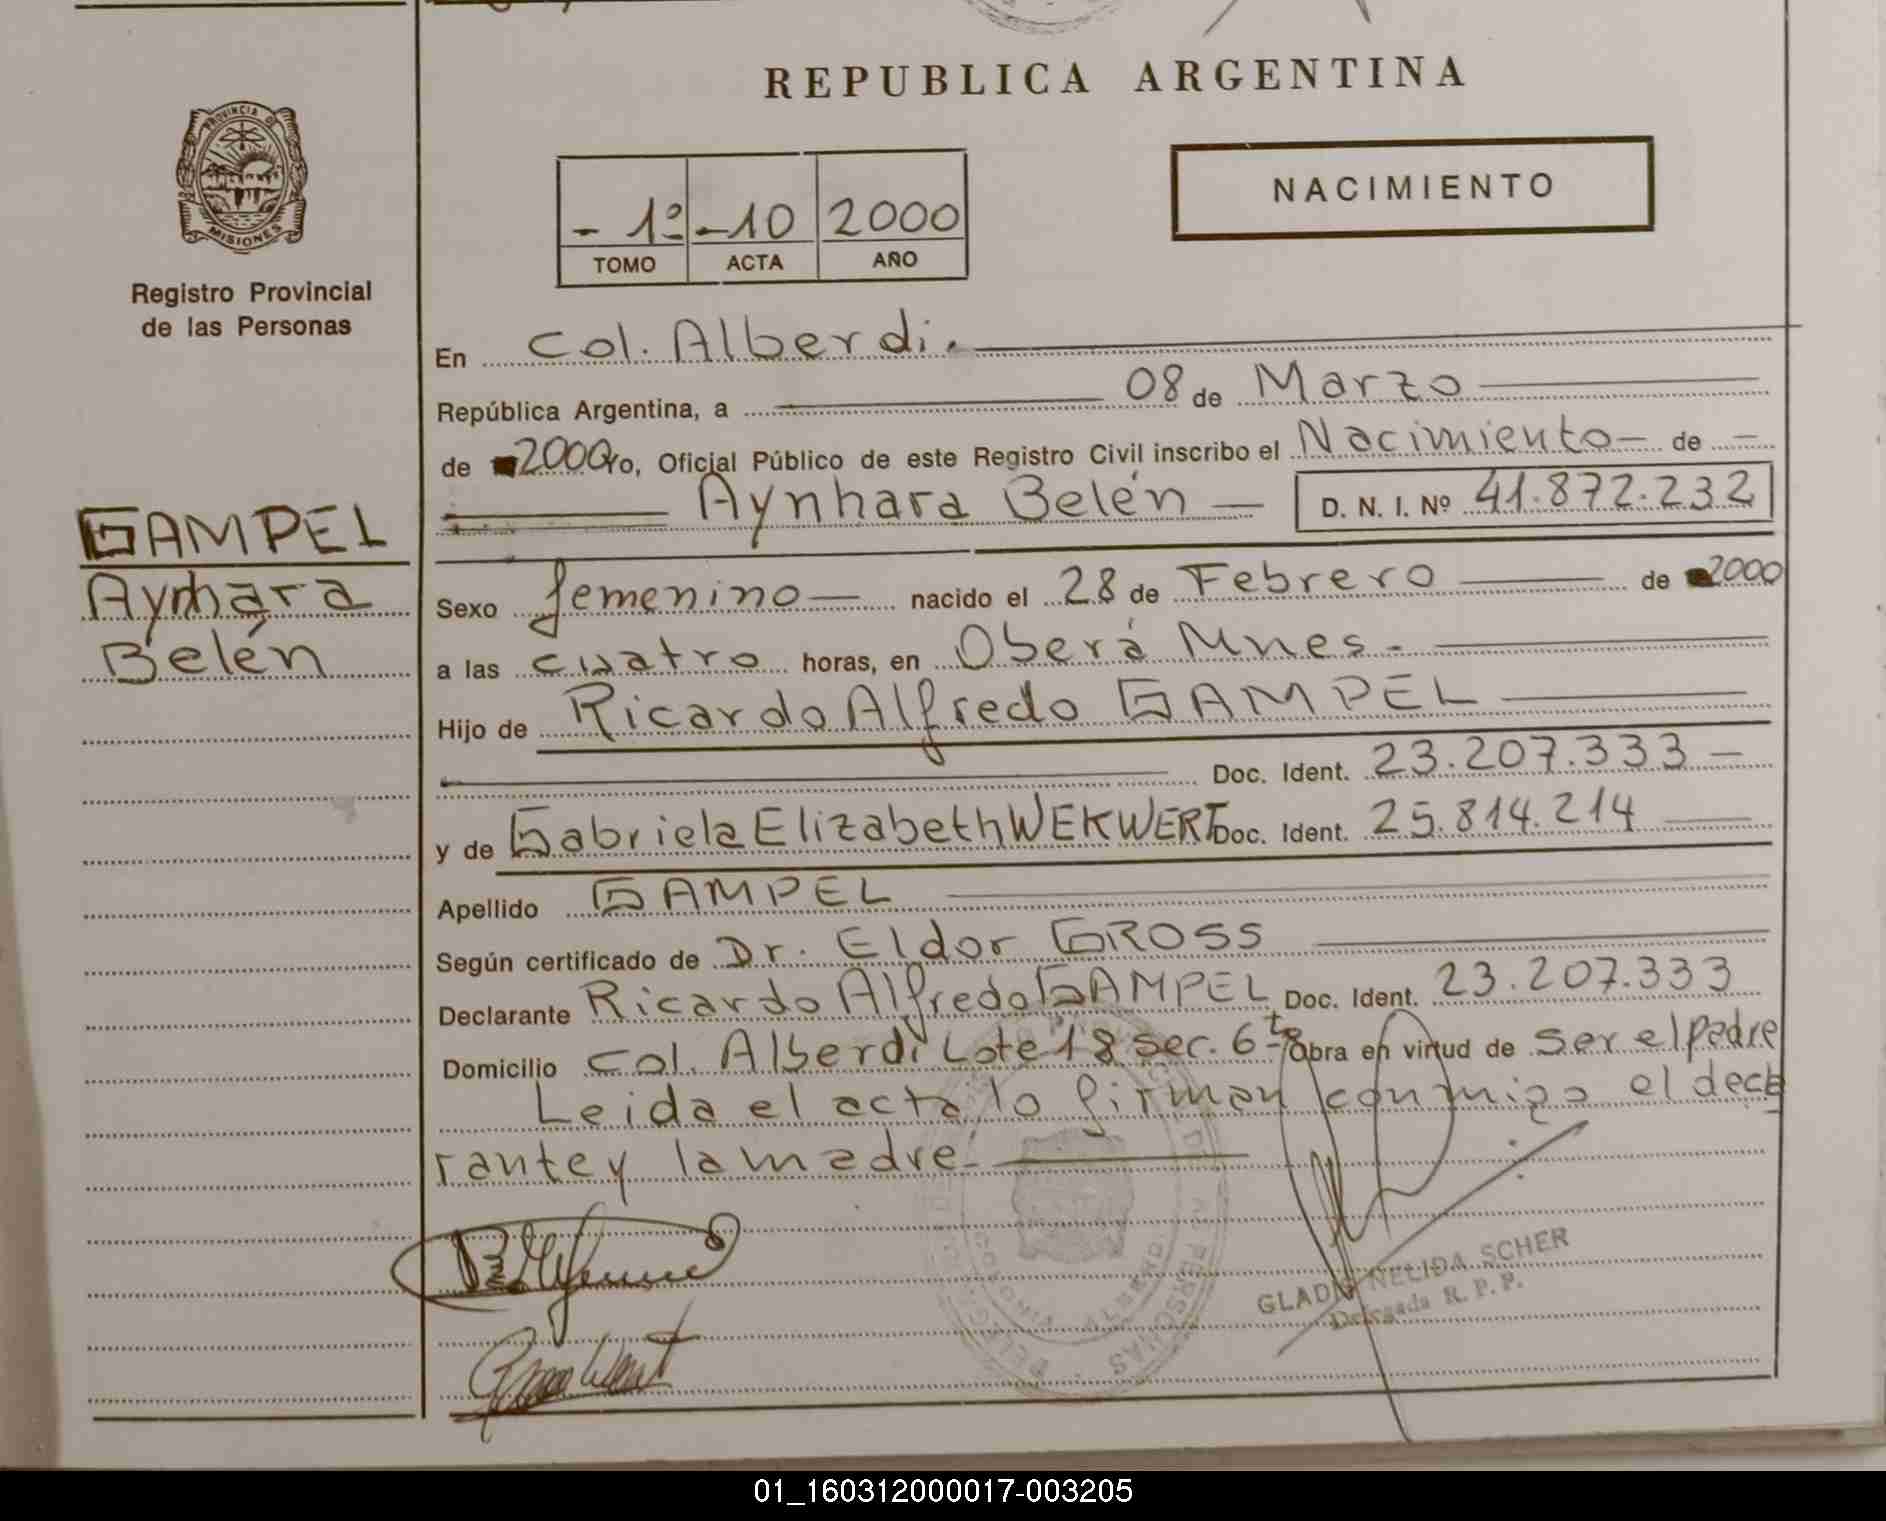 REPUBLICA ARGENTINA
PROVINCIA DE
MISIONES
Registro Provincial
de las Personas
- 1º -10 2000
TOMO ACTA AÑO
NACIMIENTO
GAMPEL
Aynhara
Belén
En Col. Alberdi.
República Argentina, a 08 de Marzo
de 2000 Yo, Oficial Público de este Registro Civil inscribo el Nacimiento de
Aynhara Belén D. N. I. Nº 41.872.232
Sexo femenino nacido el 28 de Febrero de 2000
a las cuatro horas, en Oberá Mnes.
Hijo de Ricardo Alfredo GAMPEL
Doc. Ident. 23.207.333
y de Gabriela Elizabeth WEKWERT Doc. Ident. 25.814.214
Apellido GAMPEL
Según certificado de Dr. Eldor GROSS
Declarante Ricardo Alfredo GAMPEL Doc. Ident. 23.207.333
Domicilio Col. Alberdi Lote 18 sec. 6ta Obra en virtud de ser el padre
Leida el acta lo firman conmigo el decla
rante y la madre.
GLADIS NELIDA SCHER
Delegada R. P. P.
COLONIA ALBERDI
01_160312000017-003205